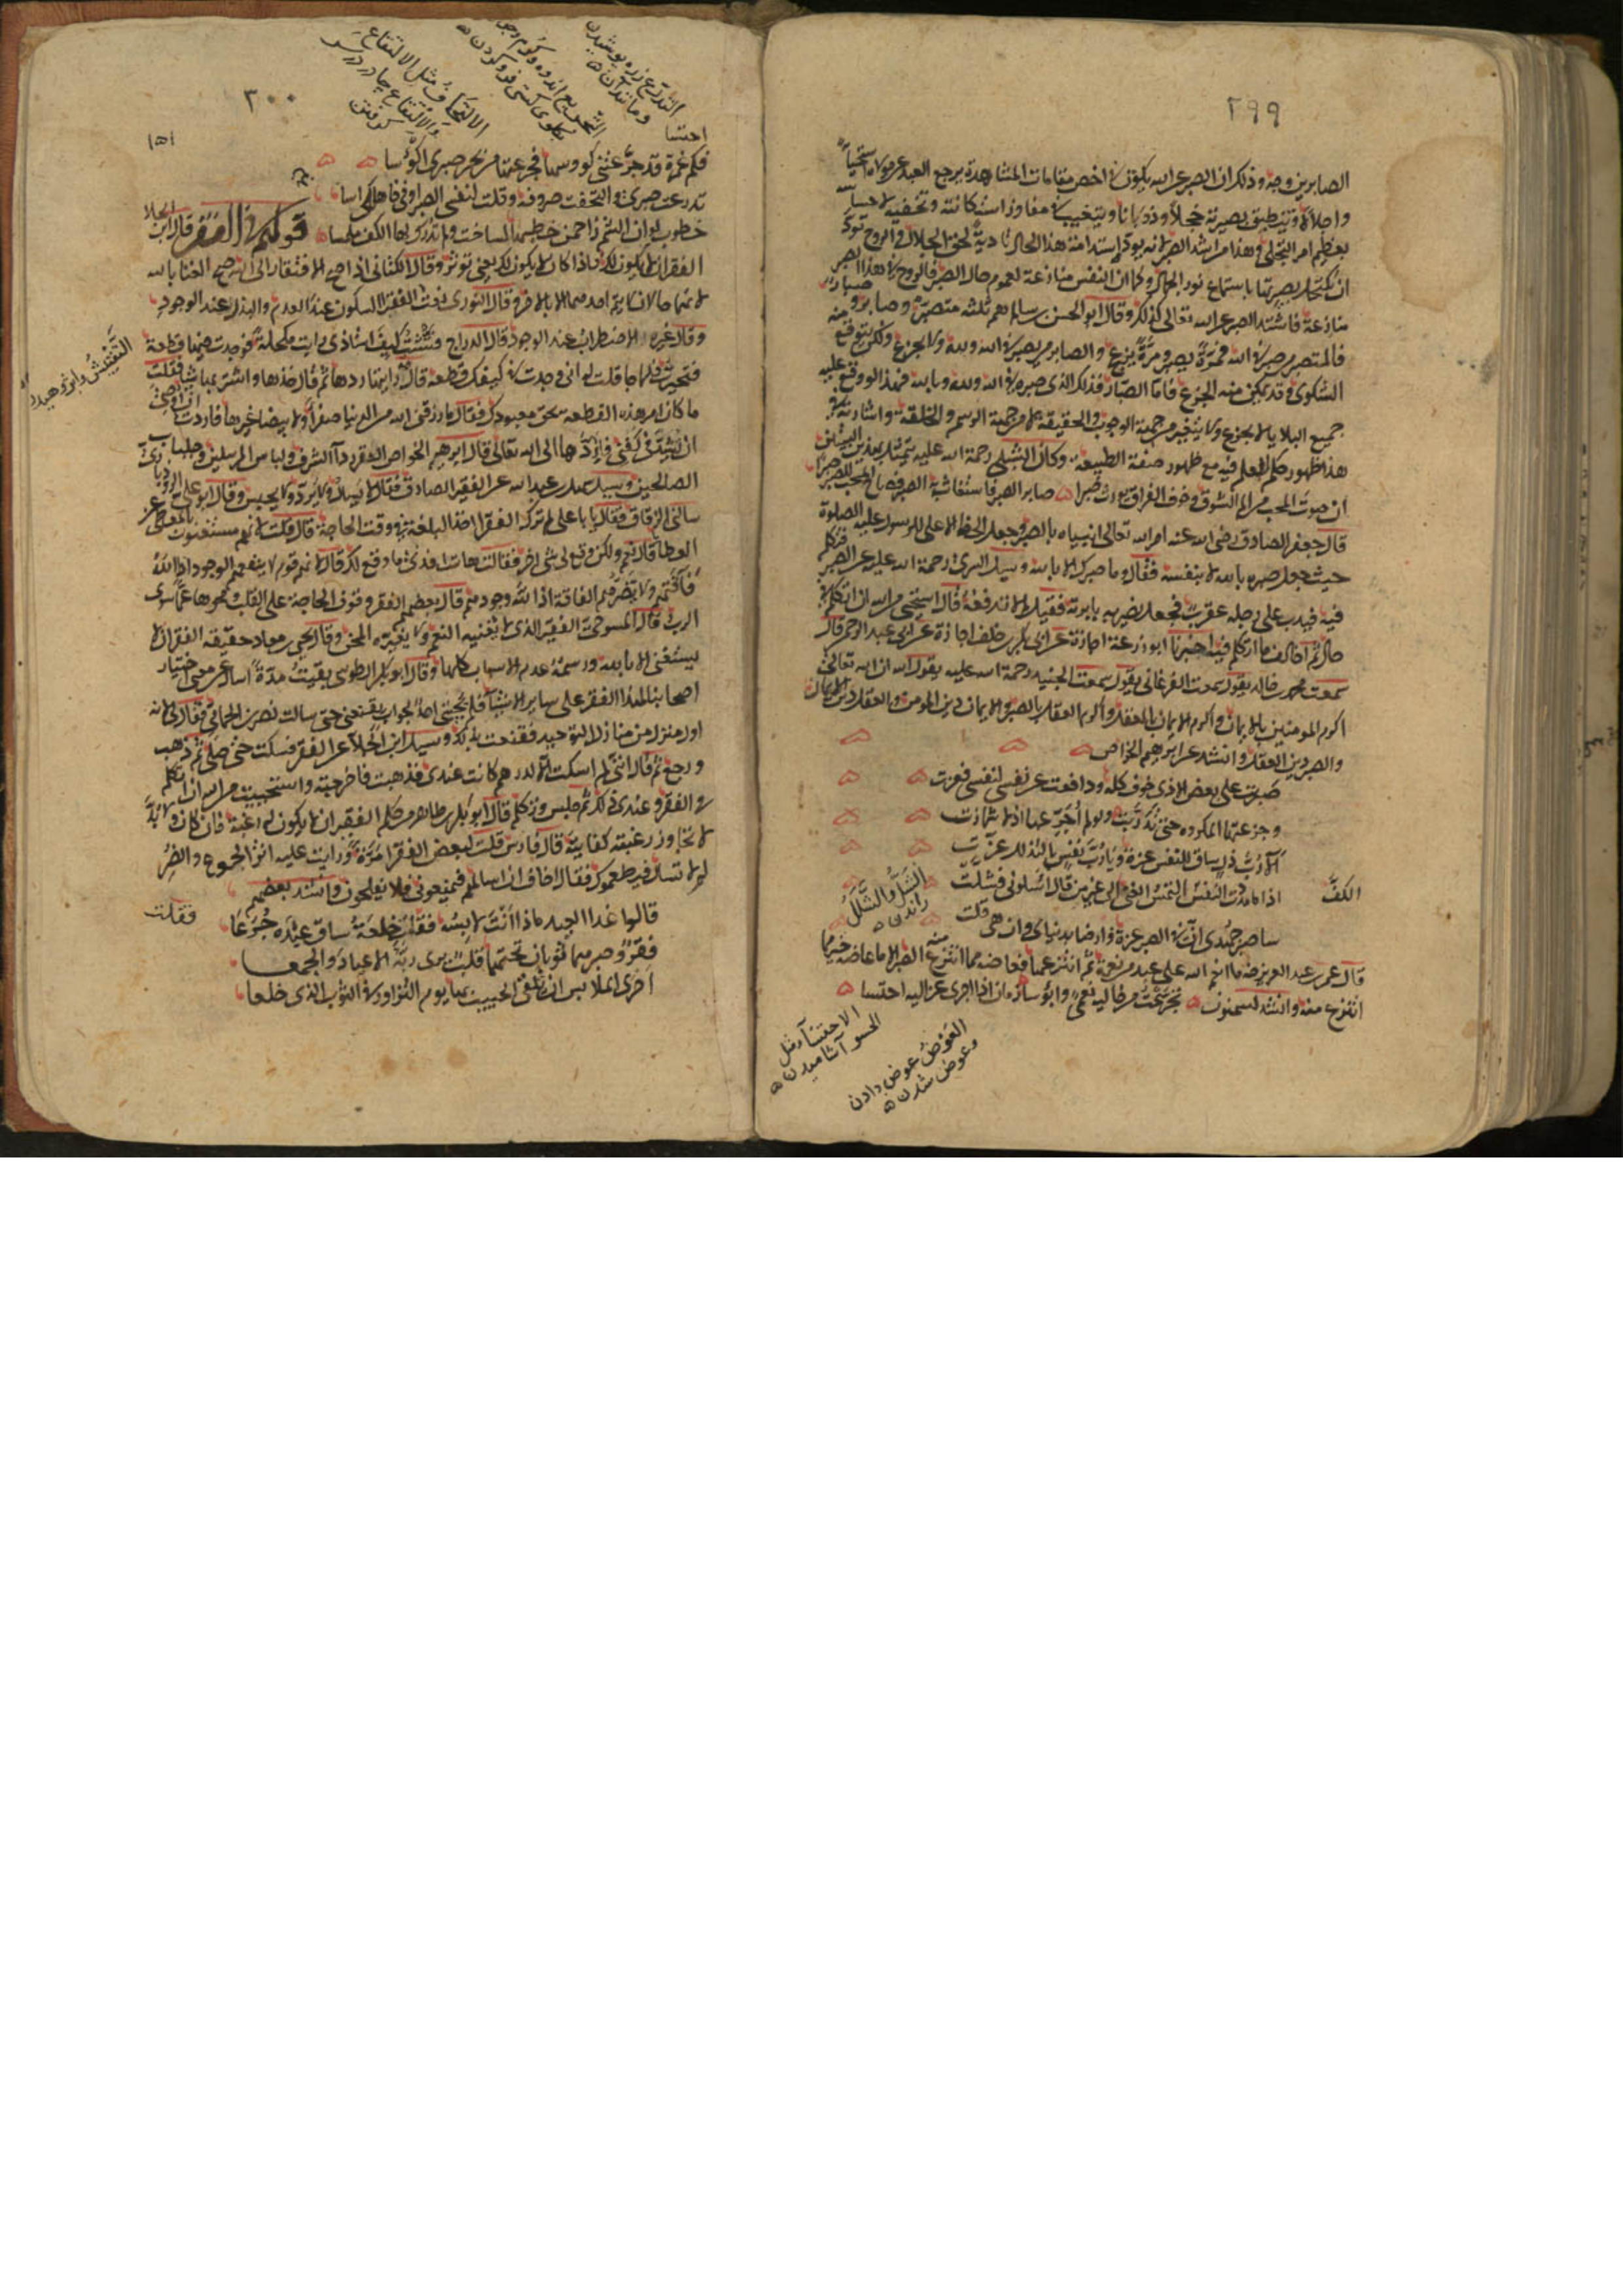 ٢٩٩
الصابرين وجه وذلك ان الصبر عن الله يكون في اخص مقامات المشاهدة يرجع العبد عن مولاه استحياء
واجلالا وتنطبق بصيرته خجلا وذوبانا ويتغيب في مفاوز استكانته وتخفيه لاحساسه
بعظيم امر التجلى وهذا من اشد الصبر لانه يود استدامة هذا الحال تادية لحق الجلال والروح تود
ان تكتحل بصيرتها باستلماع نور الجمال وكما ان النفس منازعة لعموم حال الصبر فالروح في هذا الصبر
منازعة فاشتد الصبر عن الله تعالى لذلك وقال ابو الحسن بن سالم هم ثلثه متصبر وصابر وصبار
فالمتصبر من صبر في الله فمرة يصبر ومرة يجزع والصابر من يصبر في الله ولله ولا يجزع ولكن يتوقع منه
الشكوى وقد يمكن منه الجزع فاما الصبار فذلك الذى صبره في الله ولله وبالله فهذا لو وقع عليه
جميع البلايا لا يجزع ولا يتغير من جهة الوجوب والحقيقة لا من جهة الرسم والخلقة واشارته في
هذا ظهور حكم العلم فيه مع ظهور صفة الطبيعة وكان الشبلى رحمة الله عليه يتمثل بهذين البيتين
ان صوت المحب من الم الشوق وخوف الفراق يورث ضرا صابر الصبر فاستغاث به الصبر فصاح المحب للصبر صبرا
قال جعفر الصادق رضى الله عنه امر الله تعالى انبياءه بالصبر وجعل الحظ الاعلى للرسول عليه الصلوة
حيث جعل صبره بالله لا بنفسه فقال وما صبرك الا بالله وسيل السرى رحمة الله عليه عن الصبر فتكلم
فيه فدب على رجله عقرب فجعل يضربه بابرته فقيل له لم لا تدفعه قال استحيى من الله ان اتكلم في
حال ثم اخالف ما اتكلم فيه اخبرنا ابو زرعة اجازة عن ابى بكر بن خلف اجازة عن ابى عبد الرحمن قال
سمعت محمد بن خالد يقول سمعت الفرغانى يقول سمعت الجنيد رحمة الله عليه يقول ان الله تعالى
اكرم المومنين بالايمان واكرم الايمان بالعقل واكرم العقل بالصبر والايمان دين المومن والعقل دين الايمان
والصبر دين العقل وانشد عن ابرهيم الخواص
صبرت على بعض الاذى خوف كله ودافعت عن نفسى لنفسى فعزت
وجرعتها المكروه حتى تدربت ولو لم اجرعها اذا لاشمازت
الا رب ذل ساق للنفس عزة ويا رب نفس بالتذلل عزت
اذا ما مددت الكف التمس الغنى الى غير من قال اسئلونى فشلت
الكف
الشل والشلل
راندن
ساصبر جهدى ان في الصبر عزة وارضا بدنياى وان هى قلت
قال عمر بن عبد العزيز رضه ما انعم الله على عبد من نعمة ثم انتزعها فعاضه مما انتزع منه الصبر الا ما عاضه خير مما
انتزع منه وانشد لسمنون تجرعت من حاليه نعمى وابؤسا زمان اذا اجرى عزاليه احتسا
الاحتساء مثل
الحسو آشاميدن
العوض عوض دادن
وعوض شدن
٣٠٠
التدرع زره پوشيدن
ومانند آن
الالتحاف مثل الالتفاع
والالتفاع چادر در سر
گرفتن
١٥١
احتسا
فكم غمرة قد جرعتنى كووسها فجرعتها من بحر صبرى اكؤسا
تدرعت صبرى والتحفت صروفه وقلت لنفسى الصبر او فاهلكى اسا
خطوب لو ان الشم زاحمن خطبها لساخت ولم تدرك لها الكف ملمسا قولهم في الفقر قال ابن الجلا
الفقر ان لا يكون لك فاذا كان لا يكون لك يعنى تؤثر وقال الكتانى اذا صح الافتقار الى الله صح الغنا بالله
لانهما حالان لا يتم احدهما الا بالاخر وقال النورى نعت الفقير السكون عند العدم والبذل عند الوجود
وقال غيره والاضطراب عند الوجود قال الدراج فتشت كنف استاذى اريد مكحلة فوجدت فيها قطعة
التفتيش واپژوهيدن
فتحيرت فلما جا قلت له انى وجدت في كنفك قطعة قال قد رايتها ردها ثم قال خذها واشتر بها شيا فقلت
ما كان امر هذه القطعة بحق معبودك فقال ما رزقنى الله من الدنيا صفراء ولا بيضا غيرها فاردت ان اوصى
ان تشد في كفنى فاردها الى الله تعالى قال ابرهيم الخواص الفقر رداء الشرف ولباس المرسلين وجلباب
الصالحين وسيل سهل بن عبد الله عن الفقير الصادق فقال لا يسال ولا يرد ولا يحبس وقال ابو على الروذبارى
سالنى الزقاق فقال يا با على لم ترك الفقرا اخذ البلغة في وقت الحاجة قال قلت لانهم مستغنون بالمعطى عن
العطا قال نعم ولكن وقع لى شى اخر فقلت هات افدنى ما وقع لك قال لانهم قوم لا ينفعهم الوجود اذ الله
فاقتهم ولا تضرهم الفاقة اذ الله وجودهم قال بعضهم الفقر وقوف الحاجة على القلب ومحوها عما سوى
الرب قال المسوحى الفقير الذى لا تغنيه النعم ولا تفقره المحن وقال يحيى بن معاذ حقيقة الفقر ان لا
يستغنى الا بالله ورسمه عدم الاسباب كلها وقال ابو بكر الطوسى بقيت مدة اسال عن معنى اختيار
اصحابنا لهذا الفقر على ساير الاشيآ فلم يجبنى احد بجواب يقنعنى حتى سالت نصر بن الحمامى فقال لى لانه
اول منزل من منازل التوحيد فقنعت بذلك وسيل ابن الجلآ عن الفقر فسكت حتى صلى ثم ذهب
ورجع ثم قال انى لم اسكت الا لدرهم كانت عندى فذهبت فاخرجته واستحييت من الله ان اتكلم
في الفقر وعندى ذلك ثم جلس وتكلم قال ابو بكر بن طاهر من حكم الفقير ان لا يكون له رغبة فان كان ولا بد
لا تجاوز رغبته كفايته قال فارس قلت لبعض الفقرا مرة ورايت عليه اثر الجوع والضر
لم لا تسال فيطعموك فقال اخاف ان اسالهم فيمنعونى فلا يفلحون وانشد بعضهم
قالوا غدا العيد ماذا انت لابسه فقلت خلعة ساق عبده جرعا
فقلت
فقر وصبر هما ثوبان تحتهما قلب يرى ربه الاعياد والجمعا
احرى الملابس ان تلقى الحبيب بها يوم التزاور في الثوب الذى خلعا